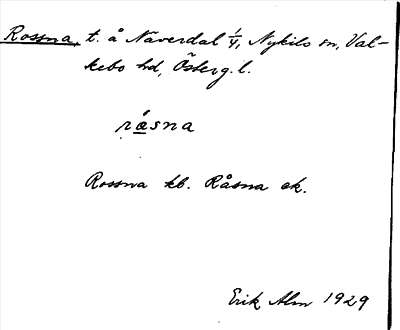 Rossna, t. å Näverdal 1/4, Nykils sn, Val-
kebo hd, Österg. l.
råsna
Rossna kb. Råsna ek.
Erik Alm 1929